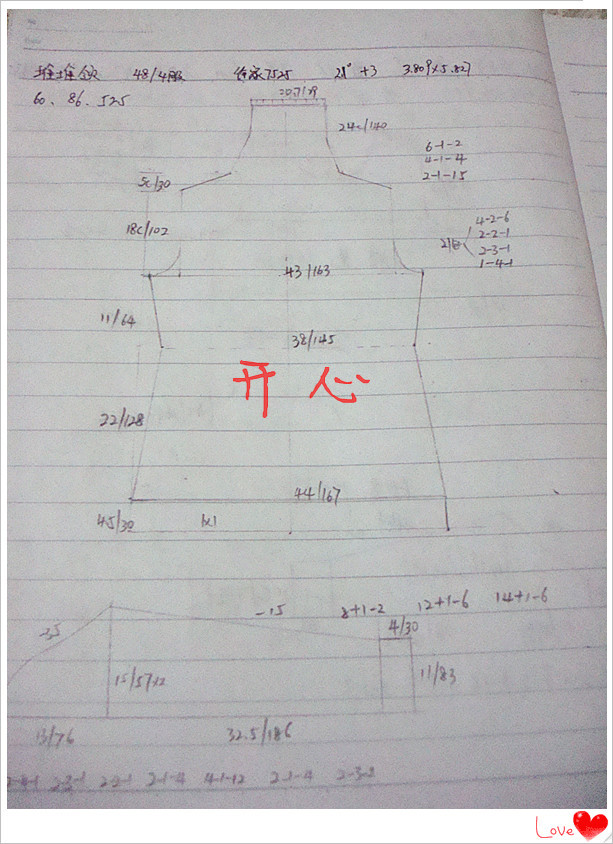 堆堆领 48/4股 7525 21° +3 3.809×5.827
60、86、525
24c/140
6-1-2
4-1-4
5c/30
2-1-15
18c/102
4-2-6
2-2-1
2-3-1
1-4-1
43/163
11/64
38/145
开心
22/128
44/167
4.5/30 1x1
-15 8+1-2 12+1-6 14+1-6
4/30
35
15/57x2
11/83
13/76
32.5/186
2-3-1 2-2-1 2-1-4 4-1-12 2-1-4
Love